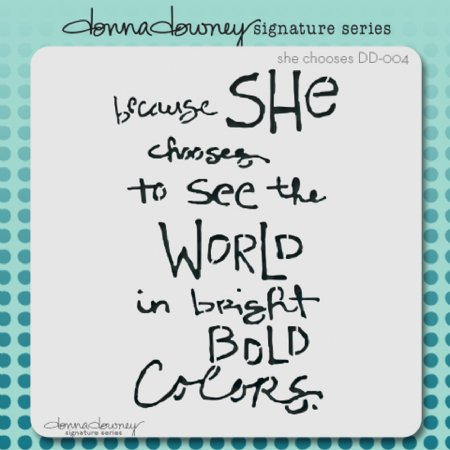 donnadowney signature series
she chooses DD-004
because SHe
chooses
to see the
WORLD
in bright
BOLD
Colors.
donnadowney
signature series